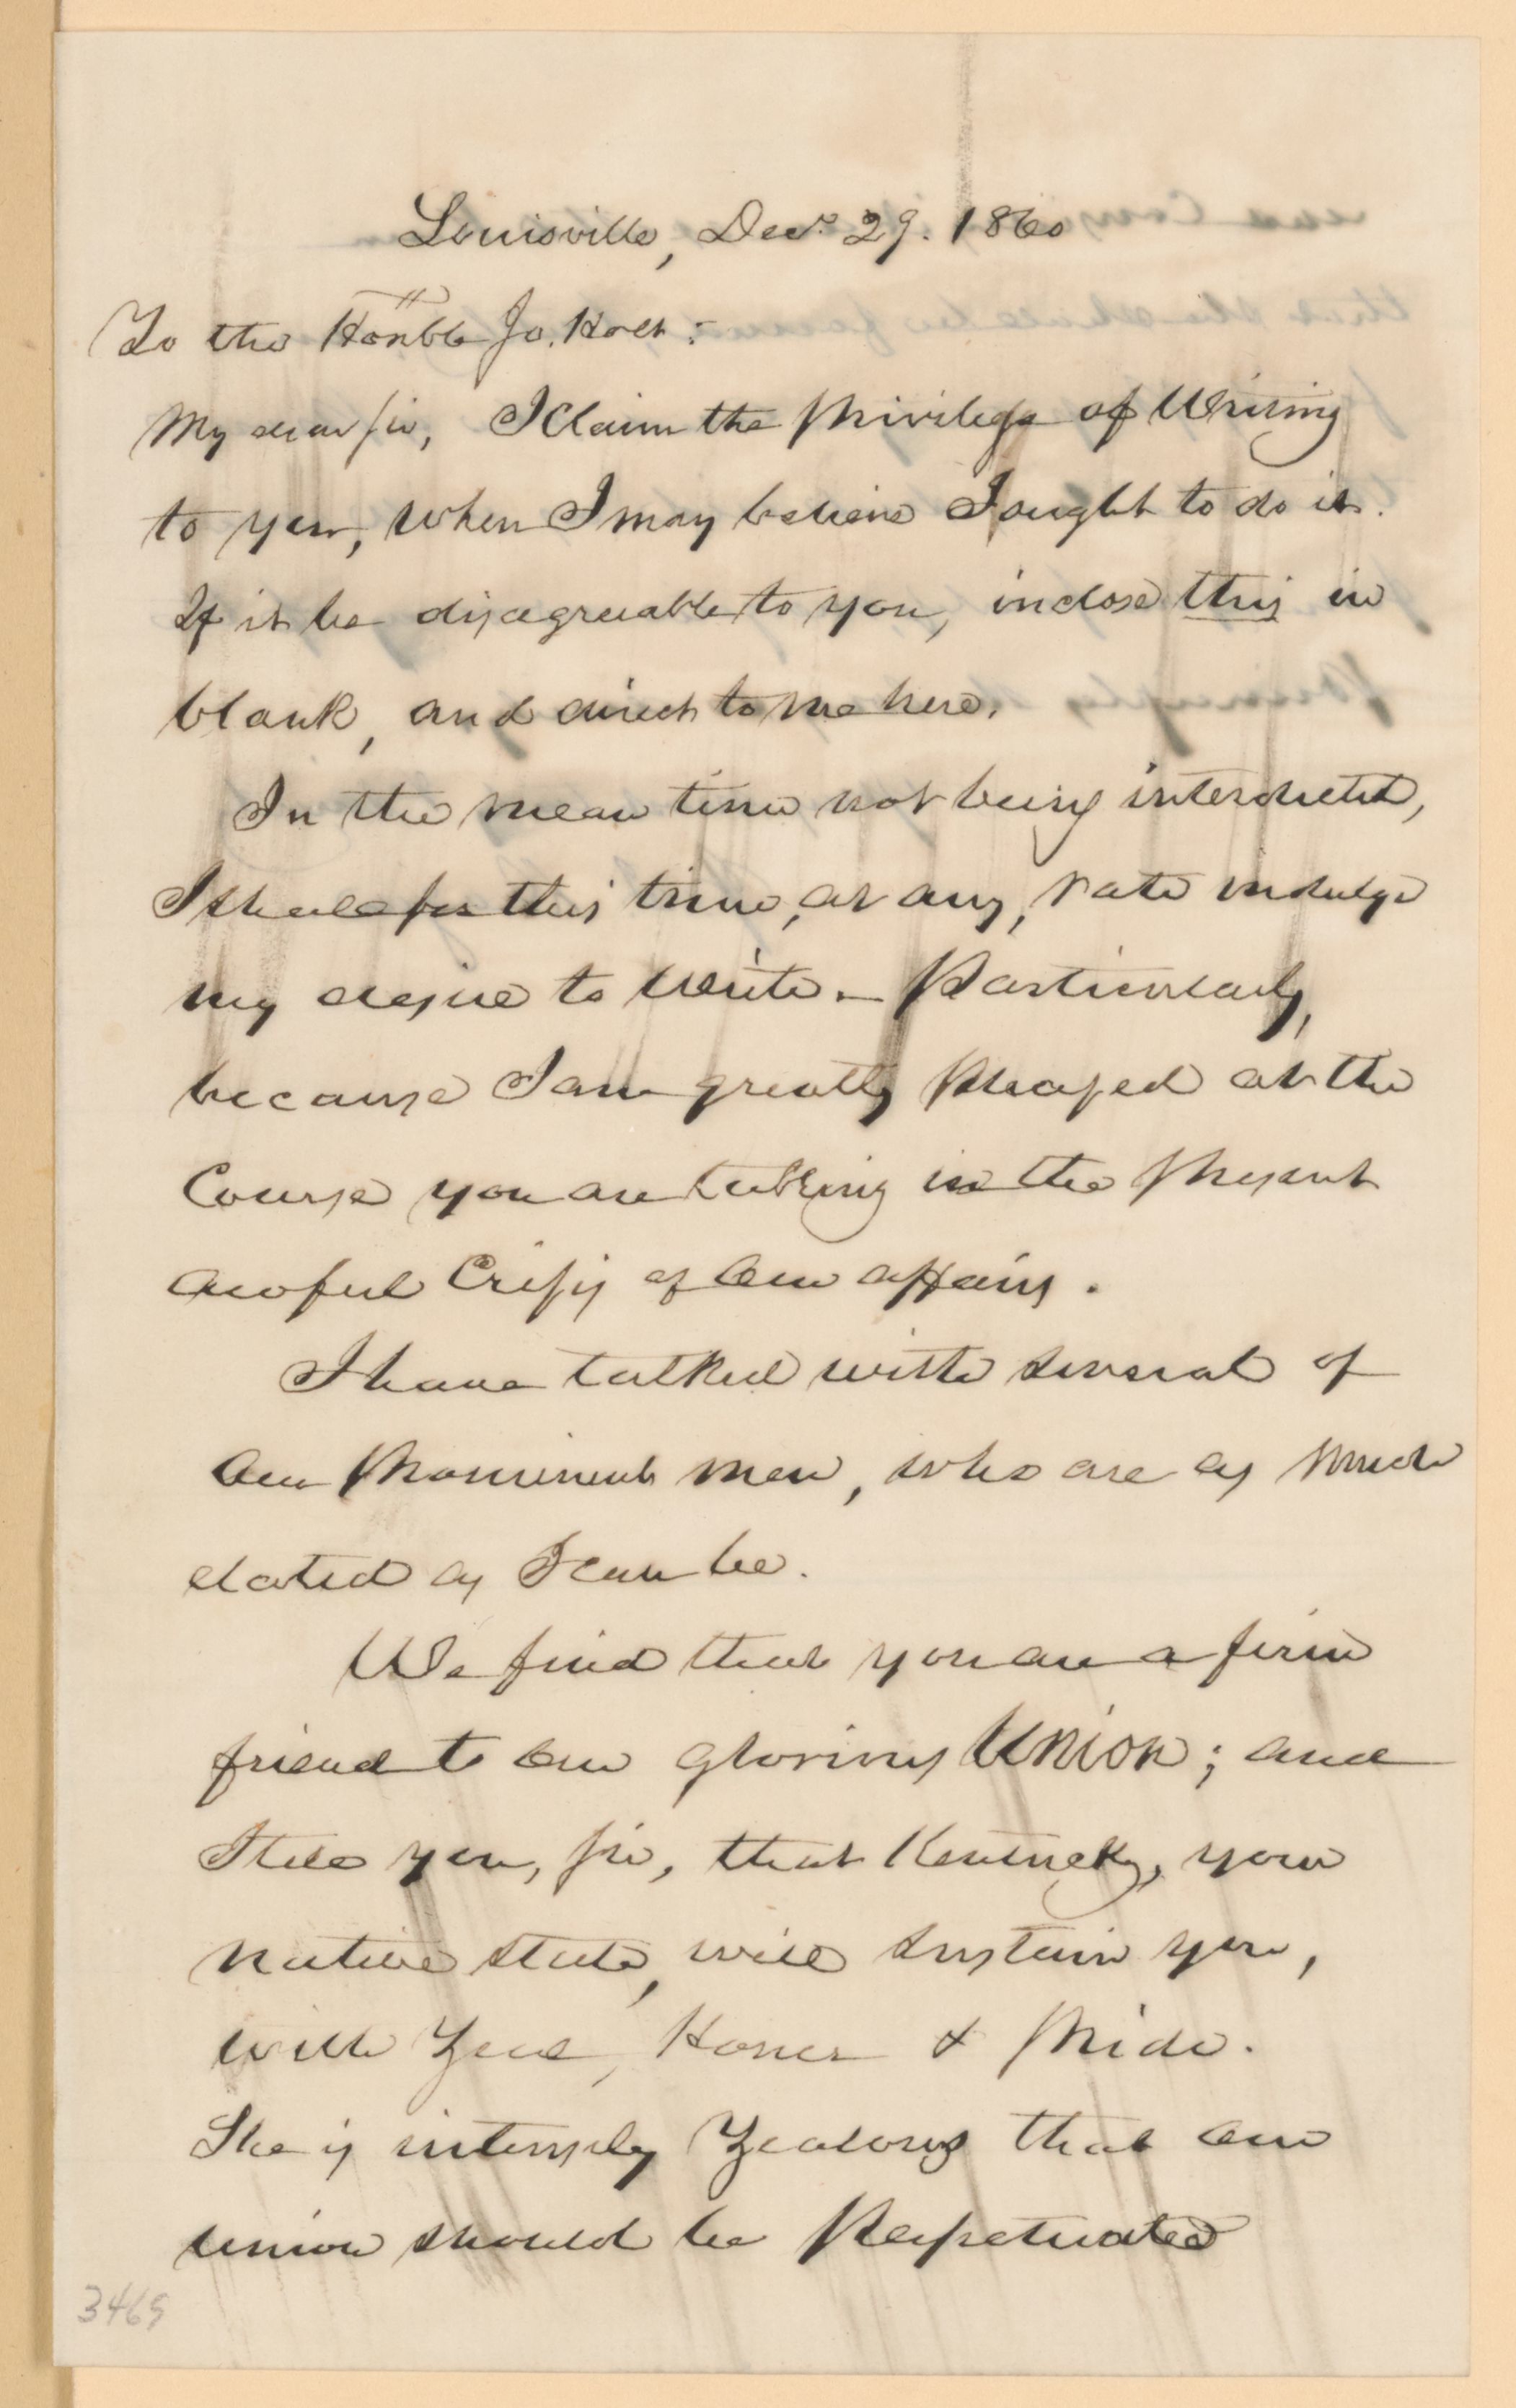 Louisville, Decr. 29. 1860
To the Honble Jo. Holt:
My dear sir, I claim the Privilege of Writing
to you, when I may believe I ought to do it.
If it be disagreeable to you, inclose this in
blank, and direct to me here.
In the mean time not being interdicted,
I shall for this time, at any, rate indulge
my desire to write. — Particularly,
because I am greatly pleased at the
Course you are taking in the Present
awful Crisis of our affairs.
I have talked with several of
our Prominent men, who are as much
elated as I can be.
We find that you are a firm
friend to our glorious Union; and
I tell you, sir, that Kentucky, your
native state, will sustain you,
with Zeal, Honer & Pride.
She is intensely Zealous that our
union should be Perpetuated
3465